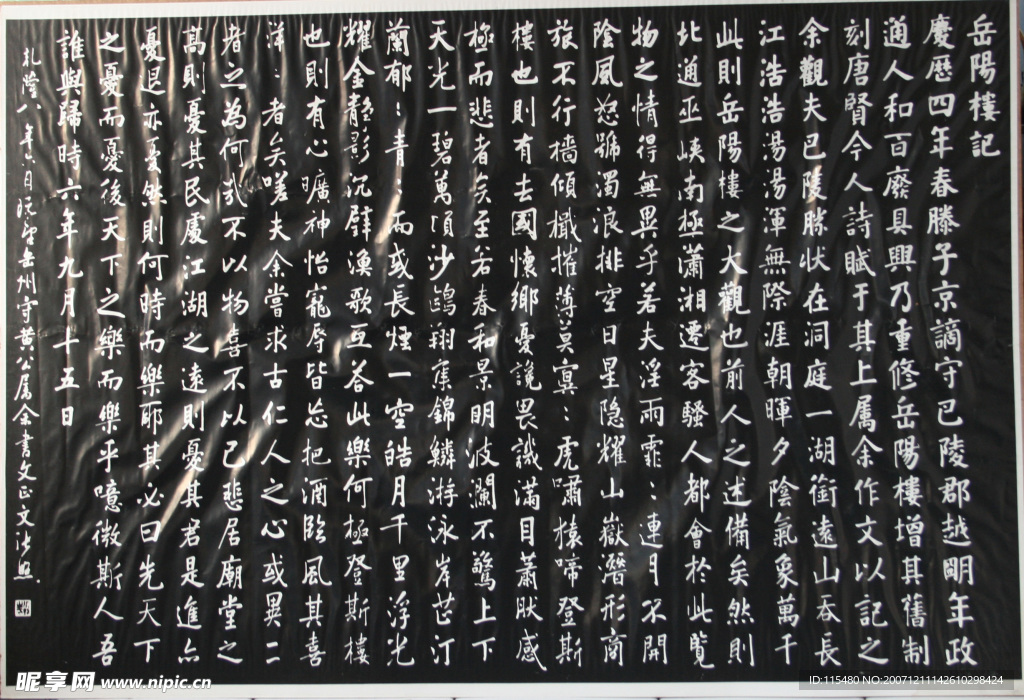 岳陽樓記
慶歷四年春滕子京謫守巴陵郡越朙年政
通人和百廢具興乃重修岳陽樓增其舊制
刻唐賢今人詩賦于其上属余作文以記之
余觀夫巴陵勝狀在洞庭一湖銜遠山吞長
江浩浩湯湯渾無際涯朝暉夕陰氣象萬千
此則岳陽樓之大觀也前人之述備矣然則
北通巫峽南極瀟湘遷客騷人都會於此覽
物之情得無異乎若夫淫雨霏：連月不開
陰風怒號濁浪排空日星隐耀山嶽潛形商
旅不行檣傾檝摧薄莫冥：虎嘯猿啼登斯
樓也則有去國懷鄉憂讒畏譏滿目蕭肰感
極而悲者矣至若春和景明波瀾不驚上下
天光一碧萬頃沙鷗翔集錦鱗游泳岸芷汀
蘭郁：青：而或長煙一空皓月千里浮光
耀金靜影沉璧漁歌互答此樂何極登斯樓
也則有心曠神怡寵辱皆忘把酒臨風其喜
洋：者矣嗟夫余嘗求古仁人之心或異二
者之為何哉不以物喜不以己悲居廟堂之
高則憂其民處江湖之遠則憂其君是進亦
憂退亦憂然則何時而樂耶其必曰先天下
之憂而憂後天下之樂而樂乎噫微斯人吾
誰與歸時六年九月十五日
乾隆八年六月既望岳州守黄公属余書文正文張照
昵享网 www.nipic.cn
ID:115480 NO:20071211142610298424